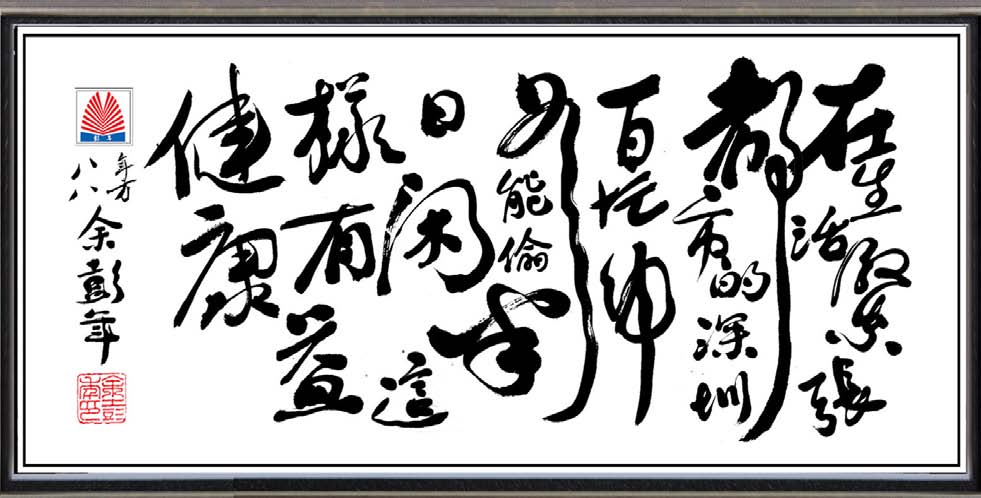 在生活緊張
都市的深圳
百忙中
如能偷半
日闲這
樣有益
健康
年方
八八余彭年
余彭年印